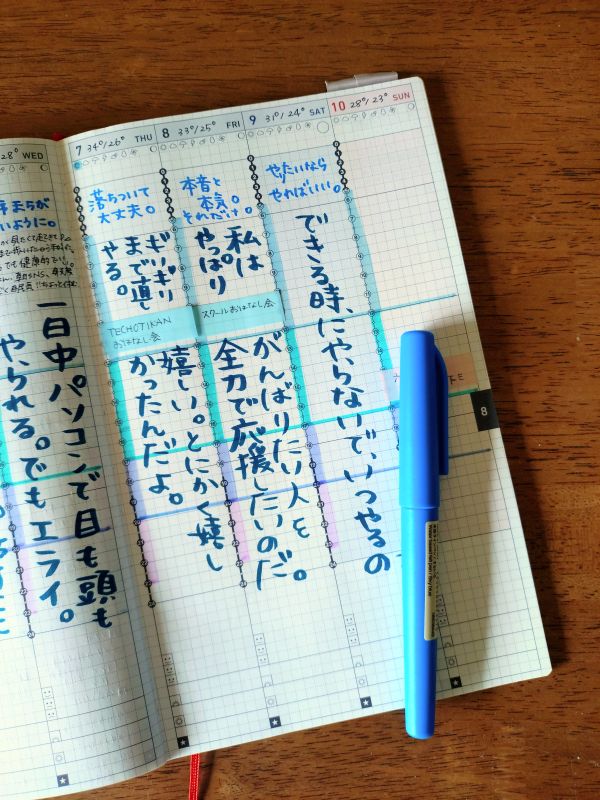 28° WED
いように。
でも健康的で
一日中パソコンで目も頭も
やられる。でもエライ。
7 34°/26° THU
落ちついて
大丈夫。
ギリギリ
まで直し
やる。
TECHOTIKAN
おはなし会
嬉しい。とにかく嬉し
かったんだよ。
8 33°/25° FRI
本音と
本気。
それだけ。
私は
やっぱり
スクールおはなし会
がんばりたい人を
全力で応援したいのだ。
9 31°/24° SAT
やりたいなら
やればいい。
できる時、にやらないで、いつやるの
10 28°/23° SUN
8